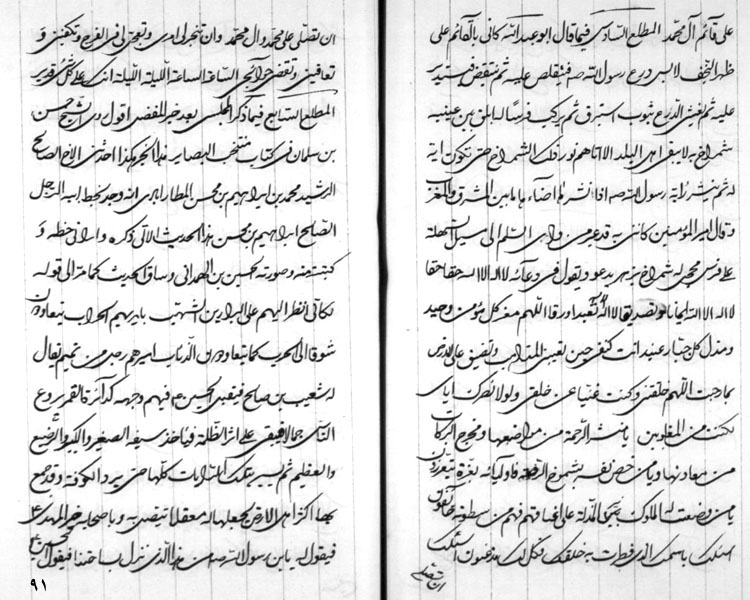 على قائم آل محمد المطلع السادس فيما قال ابو عبد الله كانى بالقائم على
ظهر النجف لابس درع رسول الله ص فيتقلص عليه ثم ينتفض فيستدير
عليه ثم يغشى الدرع بثوب استبرق ثم يركب فرسا له ابلق بين عينيه
شمراخ به لا يبقى اهل بلد الا اتاهم نور ذلك الشمراخ حتى تكون اية
له ثم ينشر راية رسول الله ص اذا نشرها اضاء بها ما بين المشرق والمغرب
وقال امير المؤمنين كاننى به قد عبر من وادى السلام الى مسيل السهلة
على فرس محجل له شمراخ يزهر يدعو ويقول فى دعائه لا اله الا الله حقا حقا
لا اله الا الله ايمانا وتصديقا لا اله الا الله تعبدا ورقا اللهم معز كل مؤمن وحيد
ومذل كل جبار عنيد انت كنفى حين تعيينى المذاهب وتضيق على الارض
بما رحبت اللهم خلقتنى وكنت غنيا عن خلقى ولولا نصرك اياى
لكنت من المغلوبين يا منشر الرحمة من مواضعها ومخرج البركات
من معادنها ويا من خص نفسه بشموخ الرفعة فاولياؤه بعزه يتعززون
يا من وضعت له الملوك نير المذلة على اعناقهم فهم من سطوته خائفون
اسئلك باسمك الذى فطرت به خلقك فكل لك مذعنون اسئلك
ان تصلى
ان تصلى على محمد وال محمد وان تنجز لى امرى وتعجل لى فى الفرج وتكفينى و
تعافينى وتقضى حوائجى الساعة الساعة الليلة الليلة انك على كل شئ قدير
المطلع السابع فيما ذكر المجلسى بعد خبر المفضل اقول روى الشيخ حسن
بن سلمان فى كتاب منتخب البصاير هذا الخبر هكذا حدثنى الاخ الصالح
الرشيد محمد بن ابراهيم بن محسن المطار ابادى انه وجد بخط ابيه الرجل
الصالح ابراهيم بن محسن هذا الحديث الآتى ذكره وارانى خطه و
كتبته منه وصورته الحسين بن الهمدانى وساق الحديث كما مر الى قوله
لكانى انظر اليهم على البراذين الشهب بايديهم الحراب يتعاوون
شوقا الى الحرب كما يتعاوى الذئاب اميرهم رجل من تميم يقال
له شعيب بن صالح فيقبل الحسين ع فيهم وجهه كدائرة القمر يروع
الناس جمالا فيبقى على اثر الظلمة فياخذ سيفه الصغير والكبير والوضيع
والعظيم ثم يسير بتلك الرايات كلها حتى يرد الكوفة وقد جمع
بها اكثر اهل الارض يجعلها له معقلا ثم يتصل به وباصحابه خبر المهدى ع
فيقولون له يا بن رسول الله ص من هذا الذى نزل بساحتنا فيقول الحسين ع
٩١